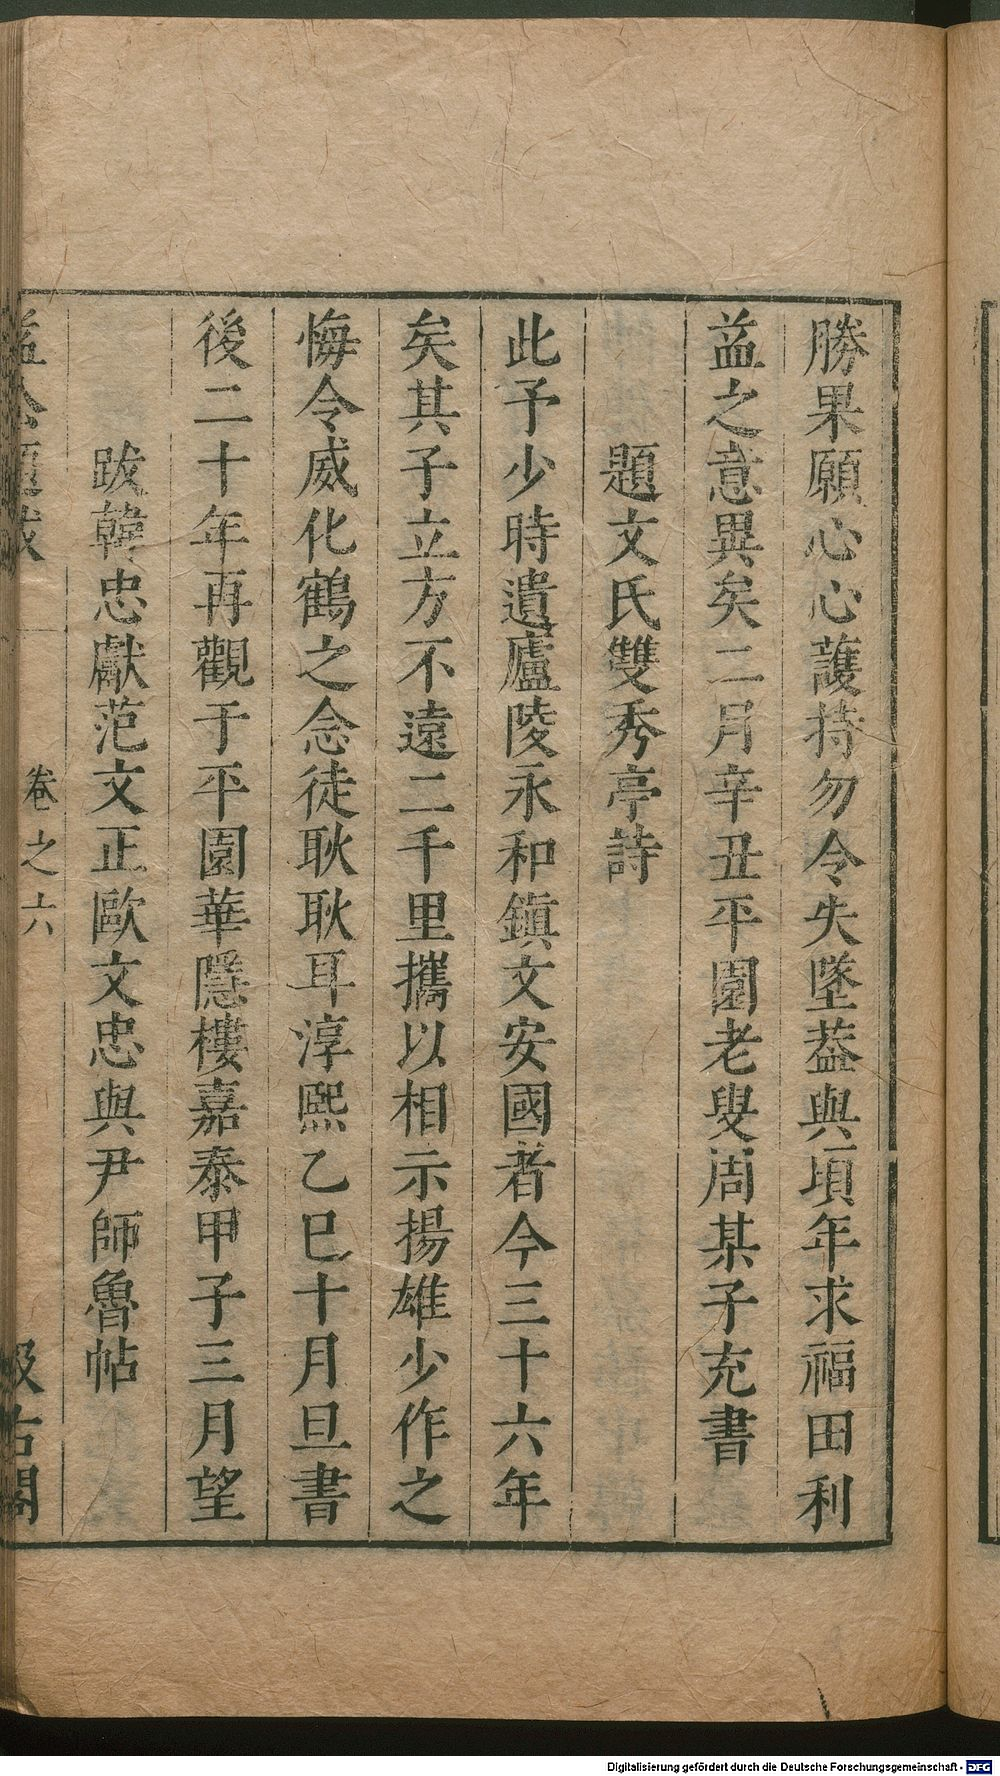 勝果願心心護持勿令失墜葢與頃年求福田利
益之意異矣二月辛丑平園老叟周某子充書
題文氏雙秀亭詩
此予少時遺廬陵永和鎮文安國者今三十六年
矣其子立方不遠二千里攜以相示揚雄少作之
悔令威化鶴之念徒耿耿耳淳熙乙巳十月旦書
後二十年再觀于平園華隱樓嘉泰甲子三月望
跋韓忠獻范文正歐文忠與尹師魯帖
益公題跋 卷之六 汲古閣
Digitalisierung gefördert durch die Deutsche Forschungsgemeinschaft - DFG